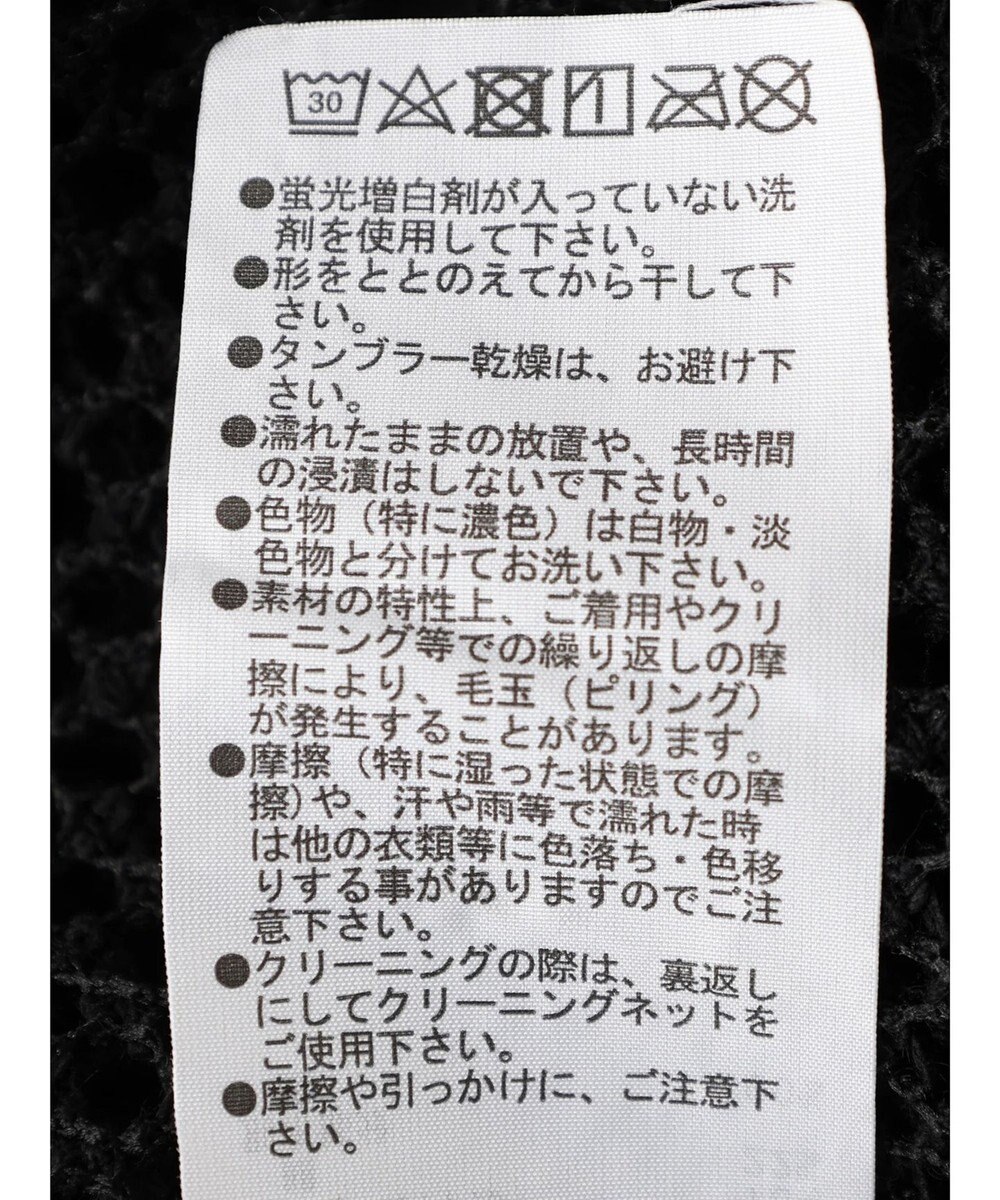 30
●蛍光増白剤が入っていない洗
剤を使用して下さい。
●形をととのえてから干して下
さい。
●タンブラー乾燥は、お避け下
さい。
●濡れたままの放置や、長時間
の浸漬はしないで下さい。
●色物（特に濃色）は白物・淡
色物と分けてお洗い下さい。
●素材の特性上、ご着用やクリ
ーニング等での繰り返しの摩
擦により、毛玉（ピリング）
が発生することがあります。
●摩擦（特に湿った状態での摩
擦）や、汗や雨等で濡れた時
は他の衣類等に色落ち・色移
りする事がありますのでご注
意下さい。
●クリーニングの際は、裏返し
にしてクリーニングネットを
ご使用下さい。
●摩擦や引っかけに、ご注意下
さい。